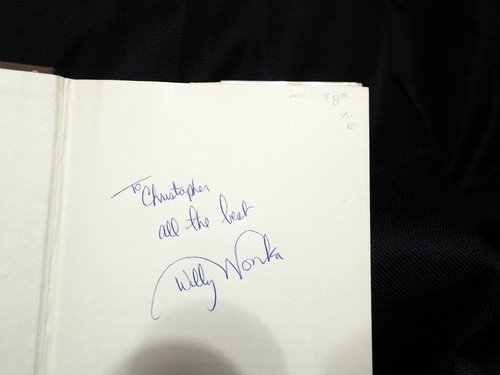 $8
To Christopher
all the best
Willy Wonka